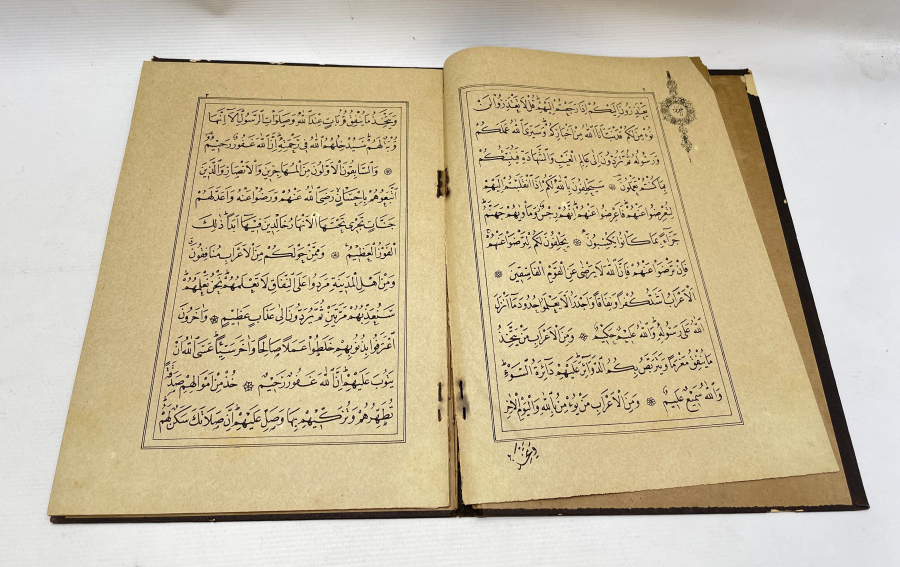 يَعْتَذِرُونَ اِلَيْكُمْ اِذَا رَجَعْتُمْ اِلَيْهِمْ قُلْ لَا تَعْتَذِرُوا لَنْ
نُؤْمِنَ لَكُمْ قَدْ نَبَّاَنَا اللّٰهُ مِنْ اَخْبَارِكُمْ وَسَيَرَى اللّٰهُ عَمَلَكُمْ
وَرَسُولُهُ ثُمَّ تُرَدُّونَ اِلٰى عَالِمِ الْغَيْبِ وَالشَّهَادَةِ فَيُنَبِّئُكُمْ
بِمَا كُنْتُمْ تَعْمَلُونَ سَيَحْلِفُونَ بِاللّٰهِ لَكُمْ اِذَا انْقَلَبْتُمْ اِلَيْهِمْ
لِتُعْرِضُوا عَنْهُمْ فَاَعْرِضُوا عَنْهُمْ اِنَّهُمْ رِجْسٌ وَمَاْوٰيهُمْ جَهَنَّمُ
جَزَاءً بِمَا كَانُوا يَكْسِبُونَ يَحْلِفُونَ لَكُمْ لِتَرْضَوْا عَنْهُمْ
فَاِنْ تَرْضَوْا عَنْهُمْ فَاِنَّ اللّٰهَ لَا يَرْضٰى عَنِ الْقَوْمِ الْفَاسِقِينَ
اَلْاَعْرَابُ اَشَدُّ كُفْرًا وَنِفَاقًا وَاَجْدَرُ اَلَّا يَعْلَمُوا حُدُودَ مَا اَنْزَلَ
اللّٰهُ عَلٰى رَسُولِهِ وَاللّٰهُ عَلِيمٌ حَكِيمٌ وَمِنَ الْاَعْرَابِ مَنْ يَتَّخِذُ
مَا يُنْفِقُ مَغْرَمًا وَيَتَرَبَّصُ بِكُمُ الدَّوَائِرَ عَلَيْهِمْ دَائِرَةُ السَّوْءِ
وَاللّٰهُ سَمِيعٌ عَلِيمٌ وَمِنَ الْاَعْرَابِ مَنْ يُؤْمِنُ بِاللّٰهِ وَالْيَوْمِ الْاٰخِرِ
٢
وَيَتَّخِذُ مَا يُنْفِقُ قُرُبَاتٍ عِنْدَ اللّٰهِ وَصَلَوَاتِ الرَّسُولِ اَلَا اِنَّهَا
قُرْبَةٌ لَهُمْ سَيُدْخِلُهُمُ اللّٰهُ فِى رَحْمَتِهِ اِنَّ اللّٰهَ غَفُورٌ رَحِيمٌ
وَالسَّابِقُونَ الْاَوَّلُونَ مِنَ الْمُهَاجِرِينَ وَالْاَنْصَارِ وَالَّذِينَ
اتَّبَعُوهُمْ بِاِحْسَانٍ رَضِىَ اللّٰهُ عَنْهُمْ وَرَضُوا عَنْهُ وَاَعَدَّ لَهُمْ
جَنَّاتٍ تَجْرِى تَحْتَهَا الْاَنْهَارُ خَالِدِينَ فِيهَا اَبَدًا ذٰلِكَ
الْفَوْزُ الْعَظِيمُ وَمِمَّنْ حَوْلَكُمْ مِنَ الْاَعْرَابِ مُنَافِقُونَ
وَمِنْ اَهْلِ الْمَدِينَةِ مَرَدُوا عَلَى النِّفَاقِ لَا تَعْلَمُهُمْ نَحْنُ نَعْلَمُهُمْ
سَنُعَذِّبُهُمْ مَرَّتَيْنِ ثُمَّ يُرَدُّونَ اِلٰى عَذَابٍ عَظِيمٍ وَاٰخَرُونَ
اعْتَرَفُوا بِذُنُوبِهِمْ خَلَطُوا عَمَلًا صَالِحًا وَاٰخَرَ سَيِّئًا عَسَى اللّٰهُ اَنْ
يَتُوبَ عَلَيْهِمْ اِنَّ اللّٰهَ غَفُورٌ رَحِيمٌ خُذْ مِنْ اَمْوَالِهِمْ صَدَقَةً
تُطَهِّرُهُمْ وَتُزَكِّيهِمْ بِهَا وَصَلِّ عَلَيْهِمْ اِنَّ صَلٰوتَكَ سَكَنٌ لَهُمْ